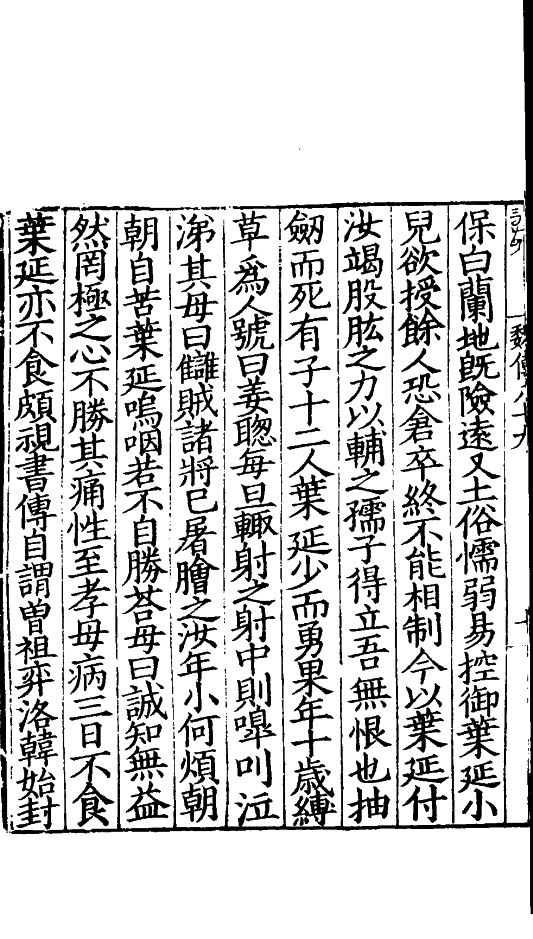 魏傳八十九
保白蘭地旣險遠又土俗懦弱易控御葉延小
兒欲授餘人恐倉卒終不能相制今以葉延付
汝竭股肱之力以輔之孺子得立吾無恨也抽
劒而死有子十二人葉延少而勇果年十歲縛
草爲人號曰姜聦每旦輙射之射中則嘷叫泣
涕其母曰讎賊諸將已屠膾之汝年小何煩朝
朝自苦葉延嗚咽若不自勝荅母曰誠知無益
然罔極之心不勝其痛性至孝母病三日不食
葉延亦不食頗視書傳自謂曽祖弈洛韓始封